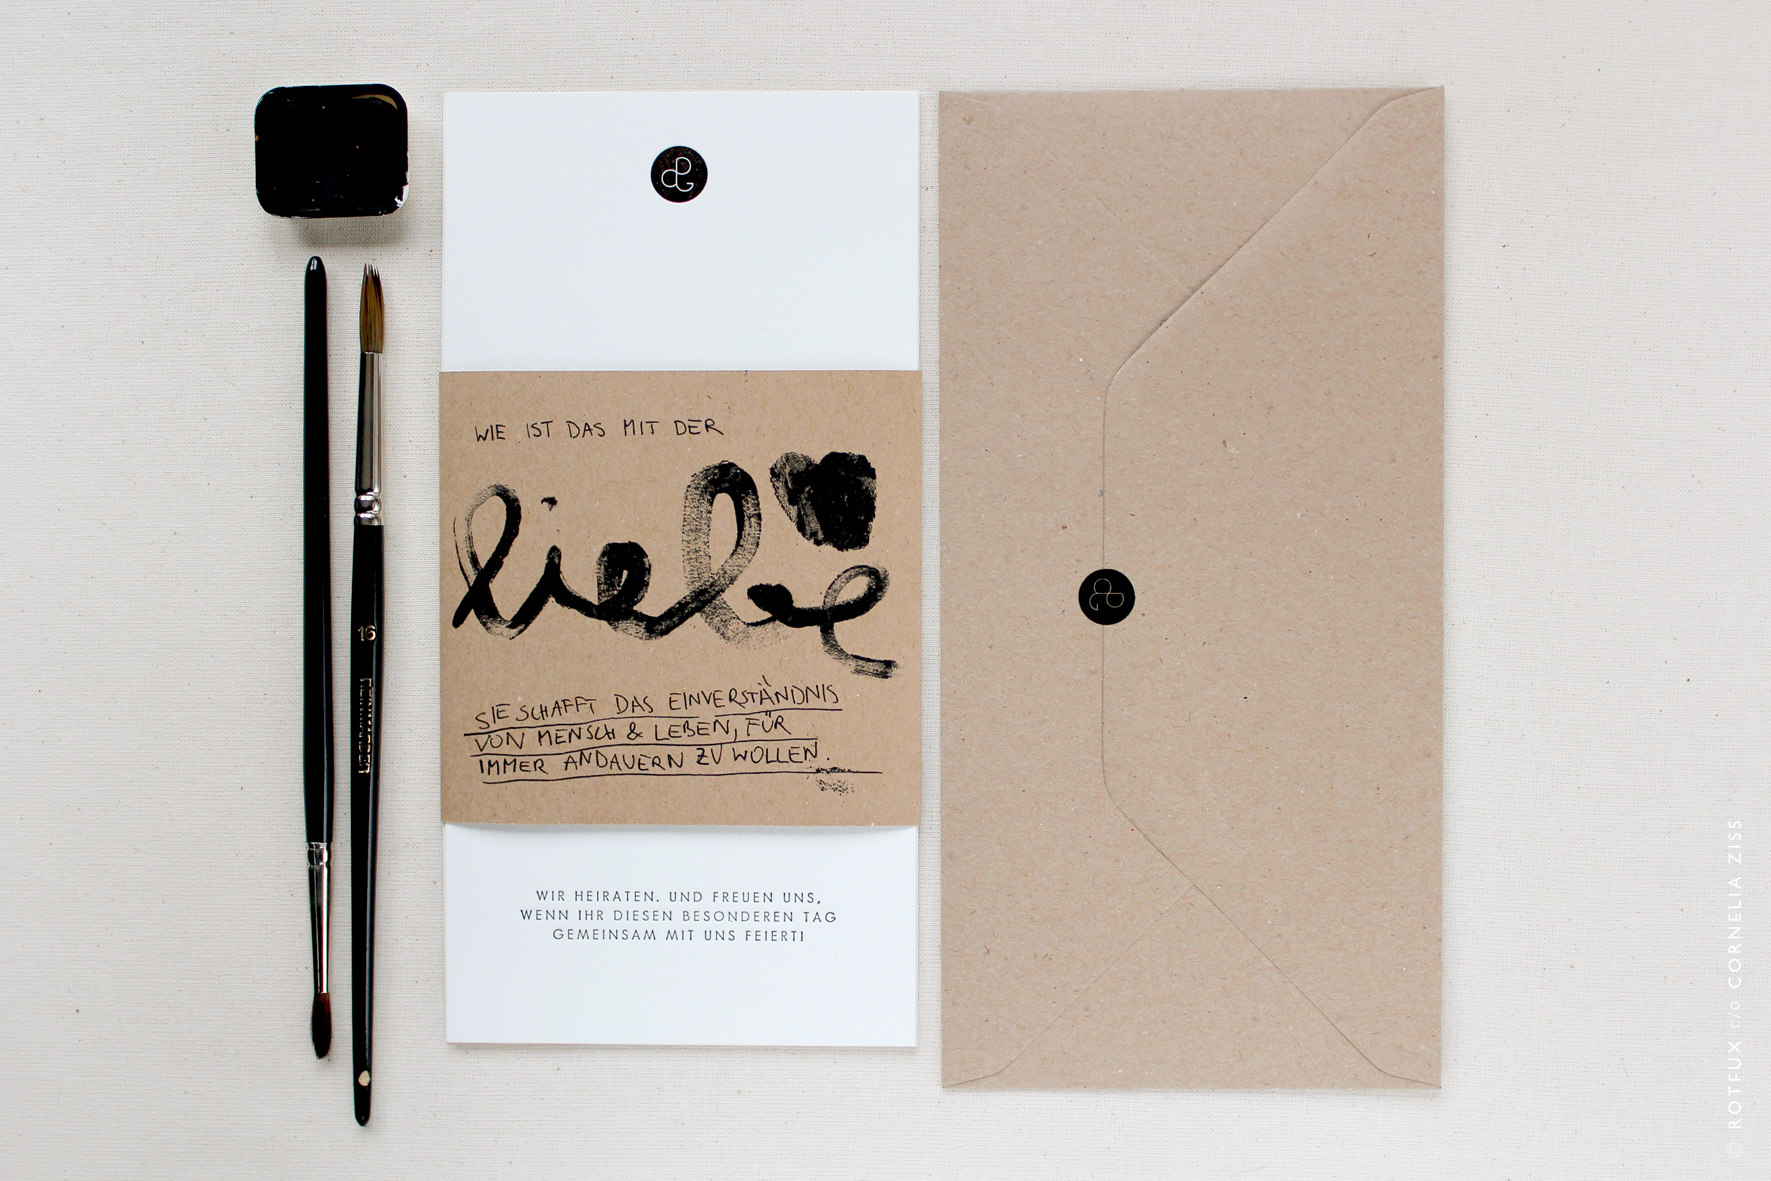 WIE IST DAS MIT DER
liebe
SIE SCHAFFT DAS EINVERSTÄNDNIS
VON MENSCH & LEBEN, FÜR
IMMER ANDAUERN ZU WOLLEN.
WIR HEIRATEN. UND FREUEN UNS,
WENN IHR DIESEN BESONDEREN TAG
GEMEINSAM MIT UNS FEIERT!
16
© ROTFUX c/o CORNELIA ZISS